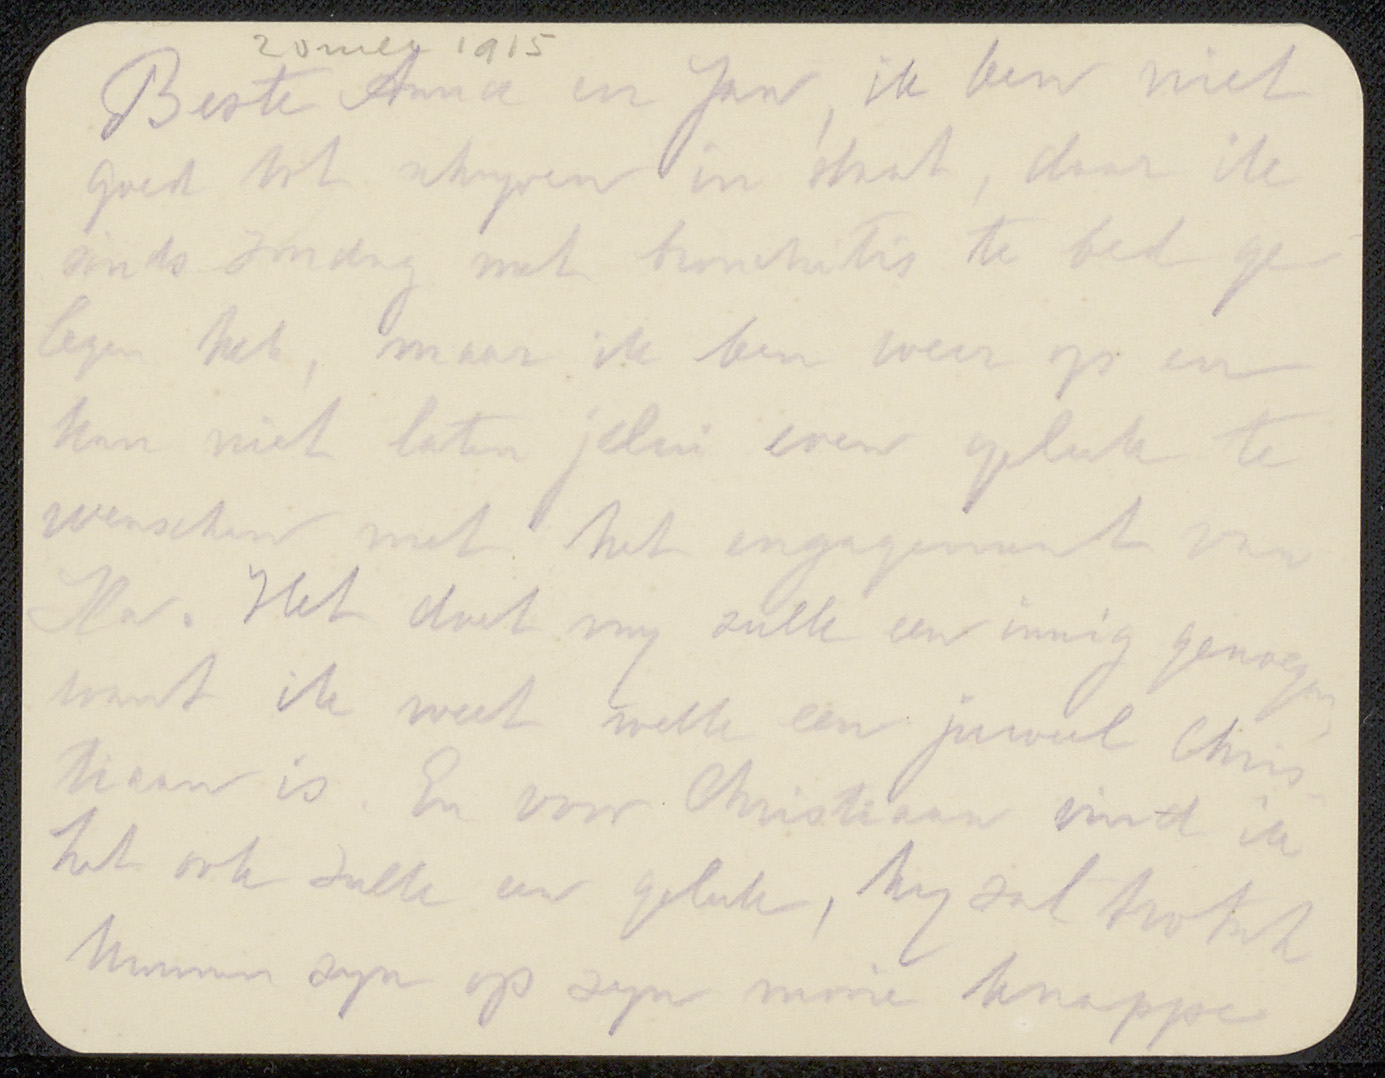 20 mei 1915
Beste Anna en Jan, ik ben niet
goed tot schryven in staat, daar ik
sinds Zondag met bronchitis te bed ge
legen heb, maar ik ben weer op en
kan niet laten jelui even geluk te
wenschen met het engagement van
Ila. Het doet my zulk een innig genoegen,
want ik weet welk een juweel Chris-
tiaan is. En voor Christiaan vind ik
het ook zulk een geluk, hy zal trotsch
kunnen zyn op zyn mooie knappe